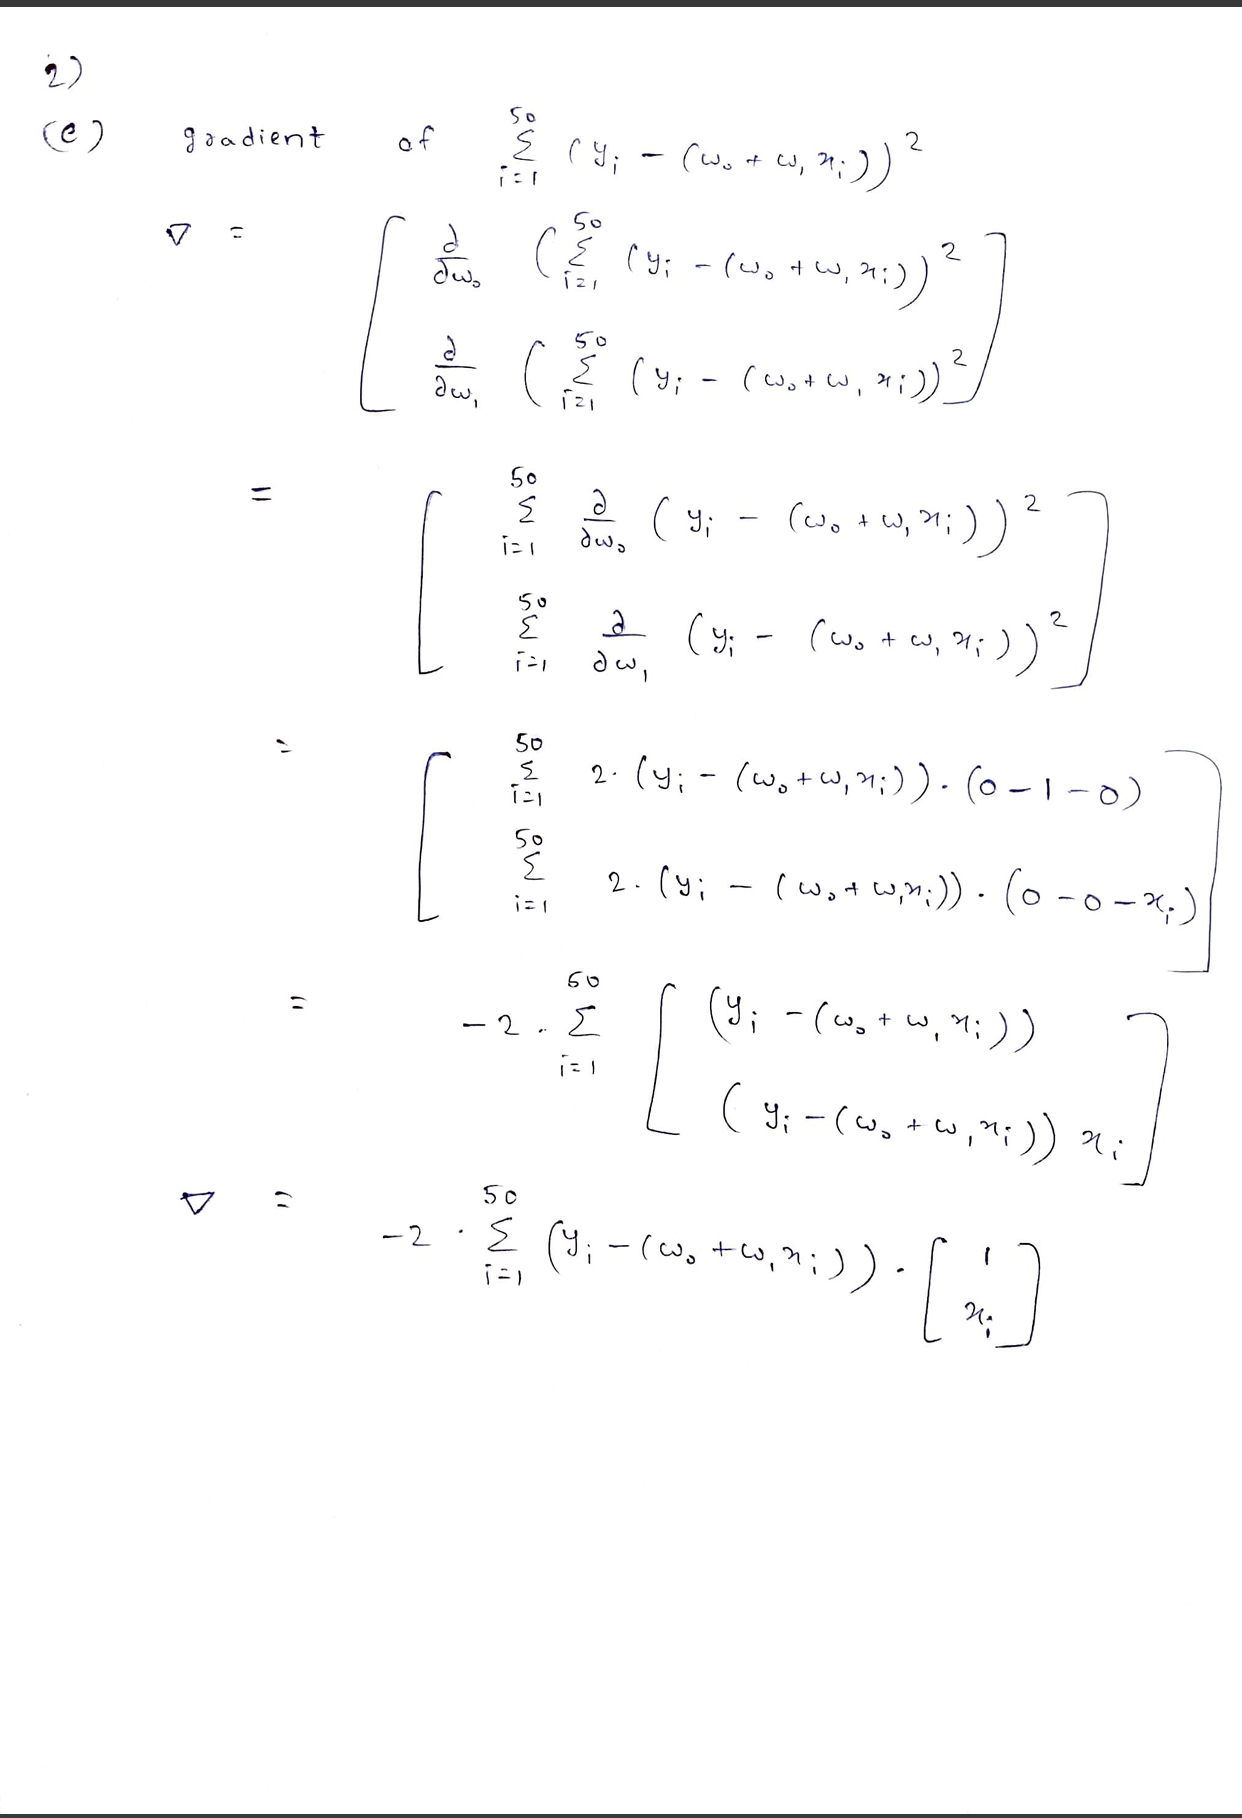 2)
(e) gradient of ∑_{i=1}^{50} (y_i - (w_0 + w_1 x_i))^2
∇ = [ ∂/∂w_0 ( ∑_{i=1}^{50} (y_i - (w_0 + w_1 x_i))^2 ]
[ ∂/∂w_1 ( ∑_{i=1}^{50} (y_i - (w_0 + w_1 x_i))^2 ]
= [ ∑_{i=1}^{50} ∂/∂w_0 (y_i - (w_0 + w_1 x_i))^2 ]
[ ∑_{i=1}^{50} ∂/∂w_1 (y_i - (w_0 + w_1 x_i))^2 ]
= [ ∑_{i=1}^{50} 2. (y_i - (w_0 + w_1 x_i)). (0 - 1 - 0) ]
[ ∑_{i=1}^{50} 2. (y_i - (w_0 + w_1 x_i)). (0 - 0 - x_i) ]
= -2 . ∑_{i=1}^{50} [ (y_i - (w_0 + w_1 x_i)) ]
[ (y_i - (w_0 + w_1 x_i)) x_i ]
∇ = -2 . ∑_{i=1}^{50} (y_i - (w_0 + w_1 x_i)) . [ 1 ]
[ x_i ]